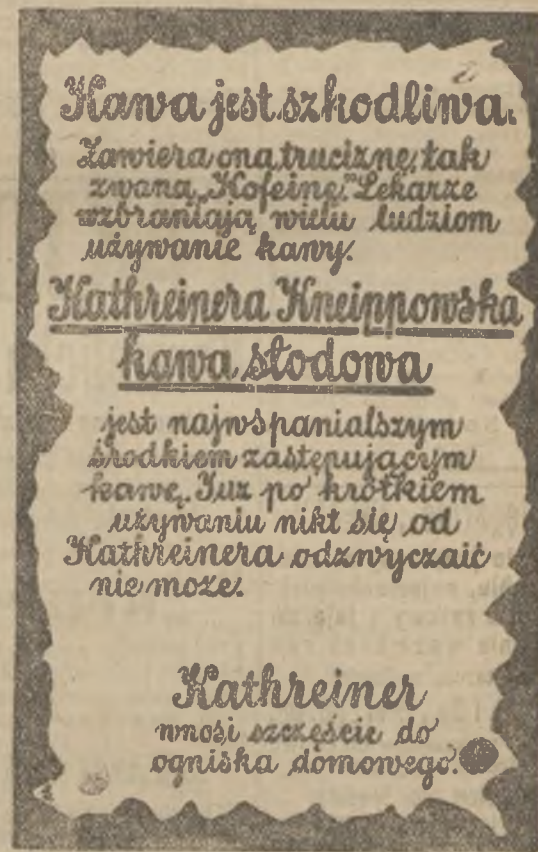 Kawa jest szkodliwa.
Zawiera ona truciznę, tak
zwaną „Kofeinę.” Lekarze
wzbraniają wielu ludziom
używanie kawy.
Kathreinera Kneippowska
kawa słodowa
jest najwspanialszym
środkiem zastępującym
kawę. Już po krótkiem
używaniu nikt się od
Kathreinera odzwyczaić
nie może.
Kathreiner
wnosi szczęście do
ogniska domowego.